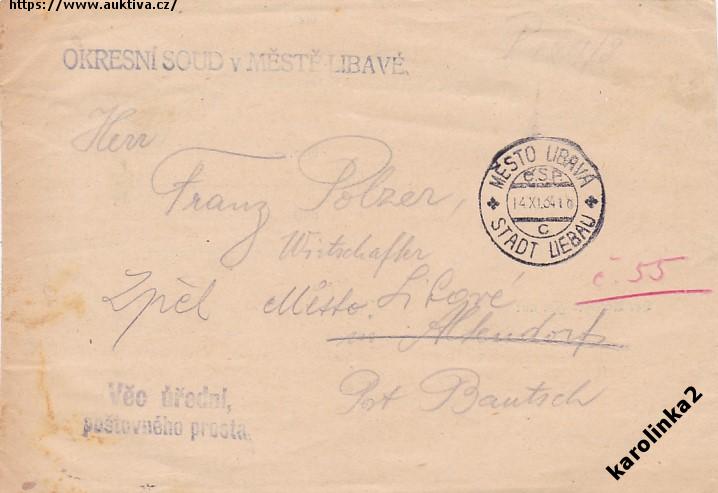 https://www.auktiva.cz/
OKRESNÍ SOUD v MĚSTĚ LIBAVÉ.
Herr
Franz Polzer,
MĚSTO LIBAVÁ
Č.S.P.
14.XI.34 18
C
STADT LIEBAU
Wirtschafter
č. 55
Zpět Město Libavé
in Altendorf
Post Bautsch
Věc úřední,
poštovného prosta.
karolinka2